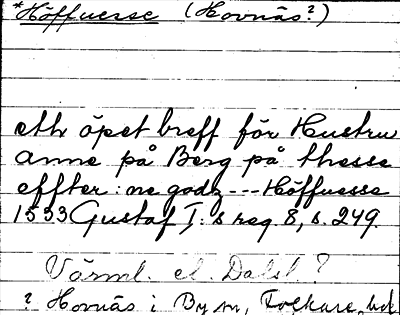 *Höffnesse (Hovnäs?)
eth öpet breff för Hustru
anne på Berg på thesse
effter:ne godz --- Höffnesse
1533 Gustaf I:s reg. 8, s. 249.
Värml. el. Dalsl.?
? Hovnäs i By sn, Folkare hd